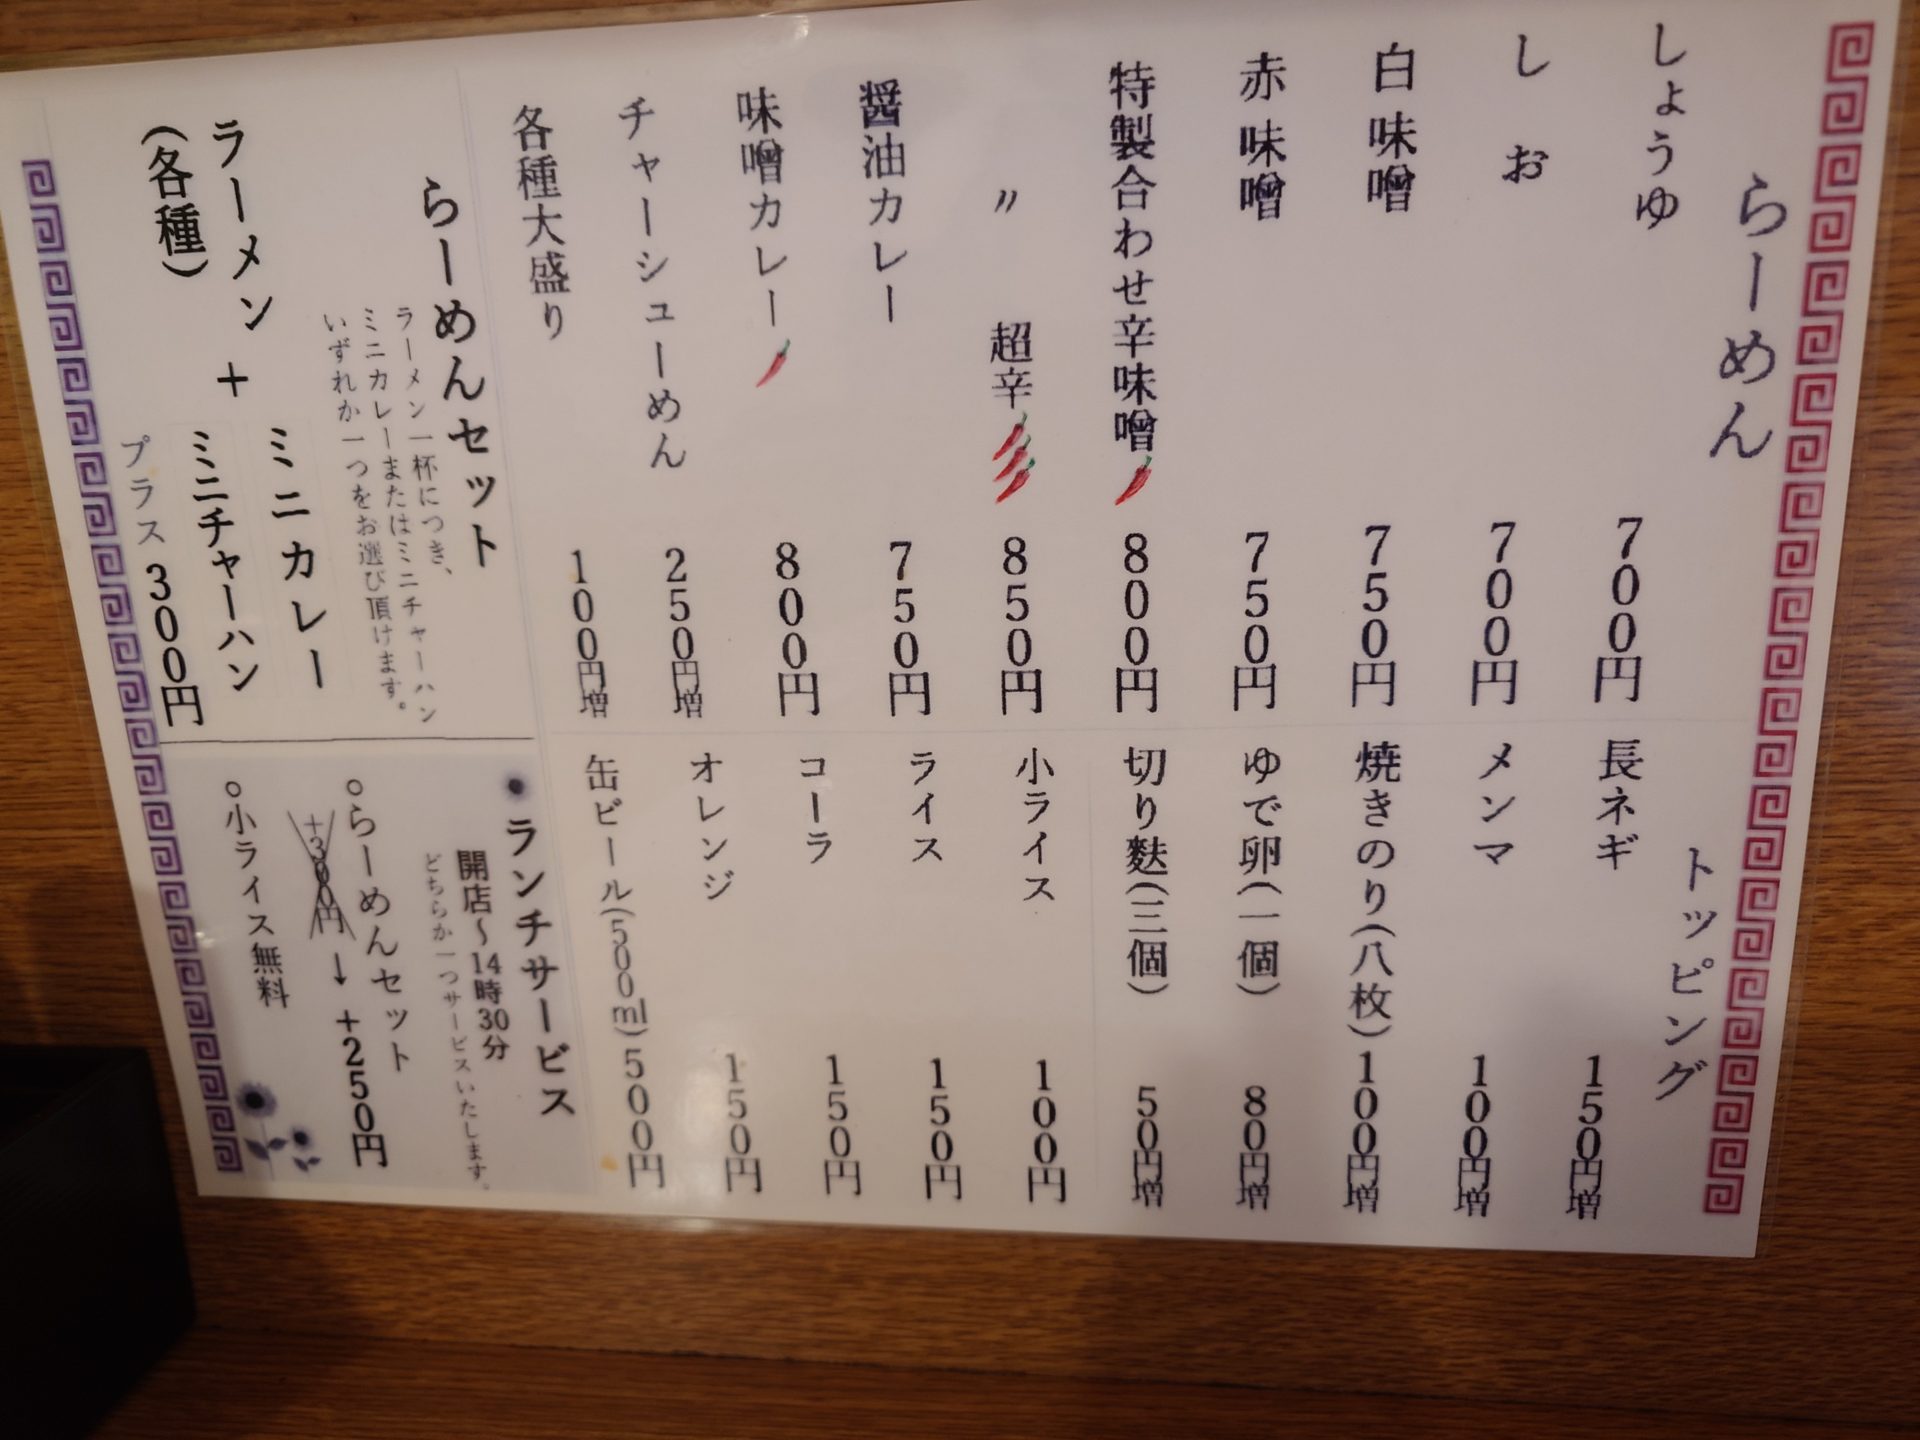 らーめん
しょうゆ 700円
しお 700円
白味噌 750円
赤味噌 750円
特製合わせ辛味噌 800円
〃 超辛 850円
醤油カレー 750円
味噌カレー 800円
チャーシューめん 250円増
各種大盛り 100円増
トッピング
長ネギ 150円増
メンマ 100円増
焼きのり(八枚) 100円増
ゆで卵(一個) 80円増
切り麩(三個) 50円増
小ライス 100円
ライス 150円
コーラ 150円
オレンジ 150円
缶ビール(500ml) 500円
らーめんセット
ラーメン一杯につき、
ミニカレーまたはミニチャーハン
いずれか一つをお選び頂けます。
ラーメン + ミニカレー
(各種) ミニチャーハン
プラス 300円
●ランチサービス
開店〜14時30分
どちらか一つサービスいたします。
○らーめんセット
+300円→+250円
○小ライス無料